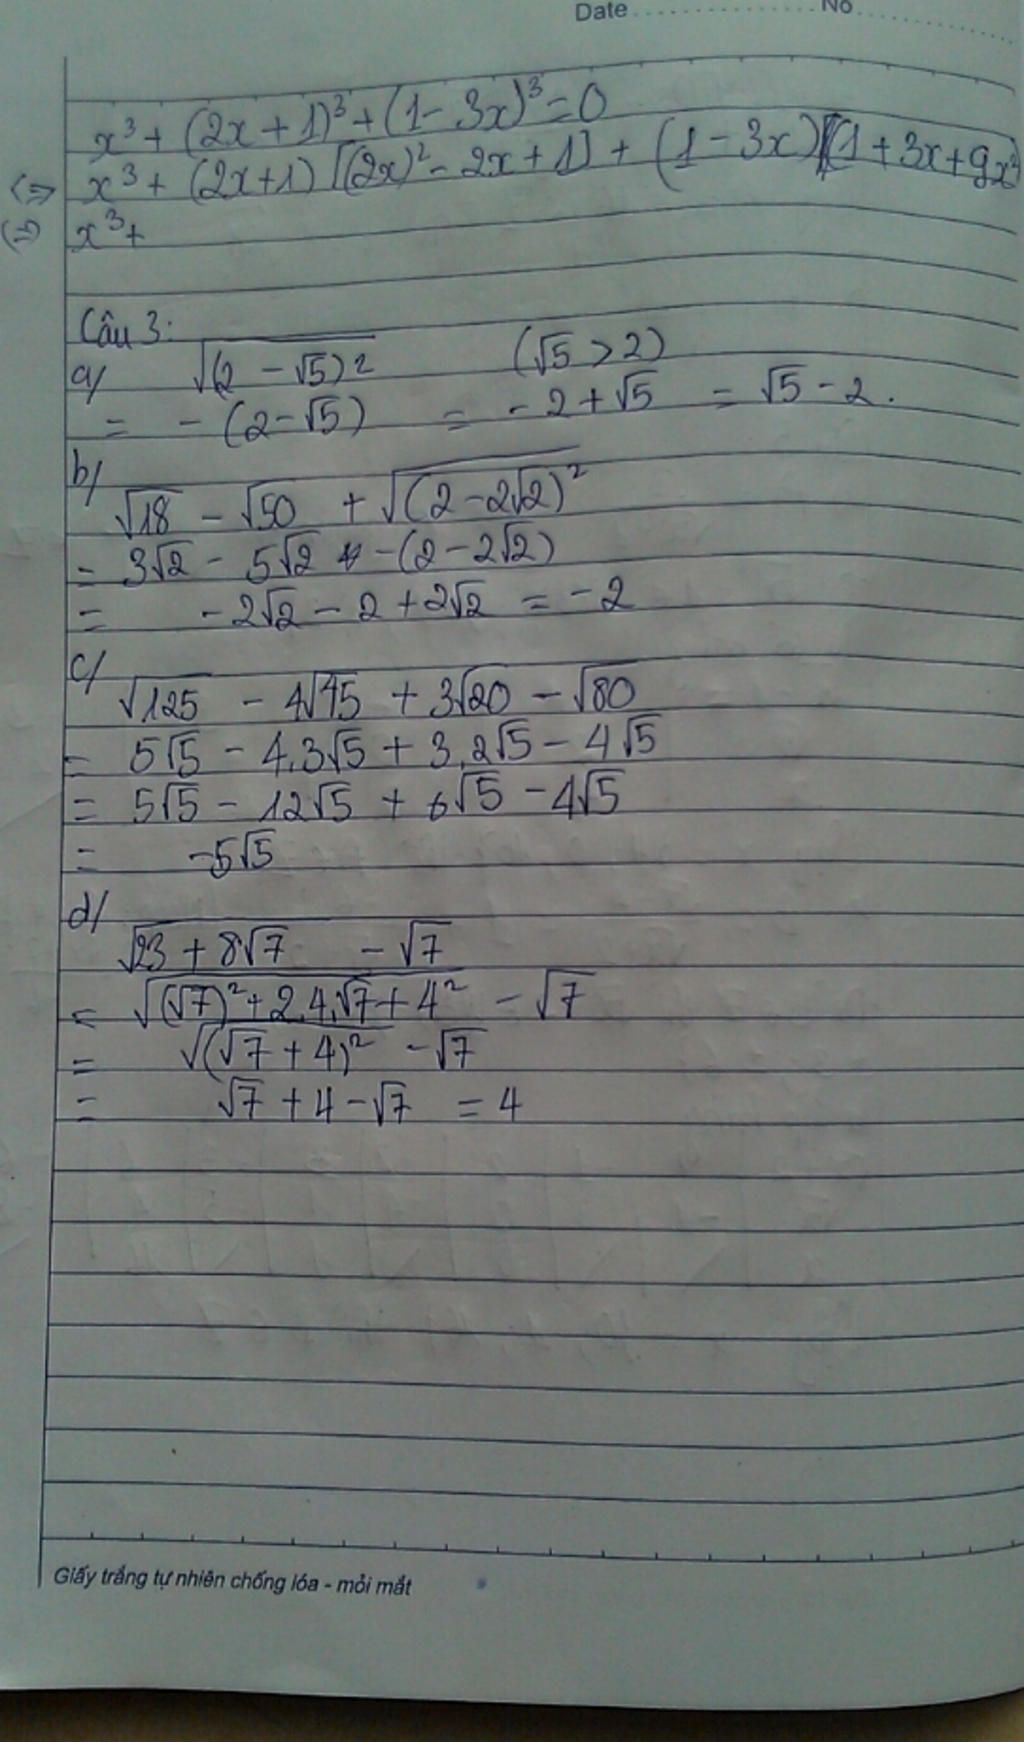 Date.................. No.....................
x³ + (2x + 1)³ + (1 - 3x)³ = 0
(=) x³ + (2x+1) [(2x)² - 2x + 1] + (1 - 3x) (1 + 3x + 9x²
(=) x³ +
Câu 3:
a/ √(2 - √5)² (√5 > 2)
= - (2 - √5) = - 2 + √5 = √5 - 2.
b/
√18 - √50 + √(2 - 2√2)²
= 3√2 - 5√2 - (2 - 2√2)
= - 2√2 - 2 + 2√2 = - 2
c/
√125 - 4√45 + 3√20 - √80
= 5√5 - 4.3√5 + 3.2√5 - 4√5
= 5√5 - 12√5 + 6√5 - 4√5
= -5√5
d/
√23 + 8√7 - √7
= √(√7)² + 2.4.√7 + 4² - √7
= √(√7 + 4)² - √7
= √7 + 4 - √7 = 4
Giấy trắng tự nhiên chống lóa - mỏi mắt